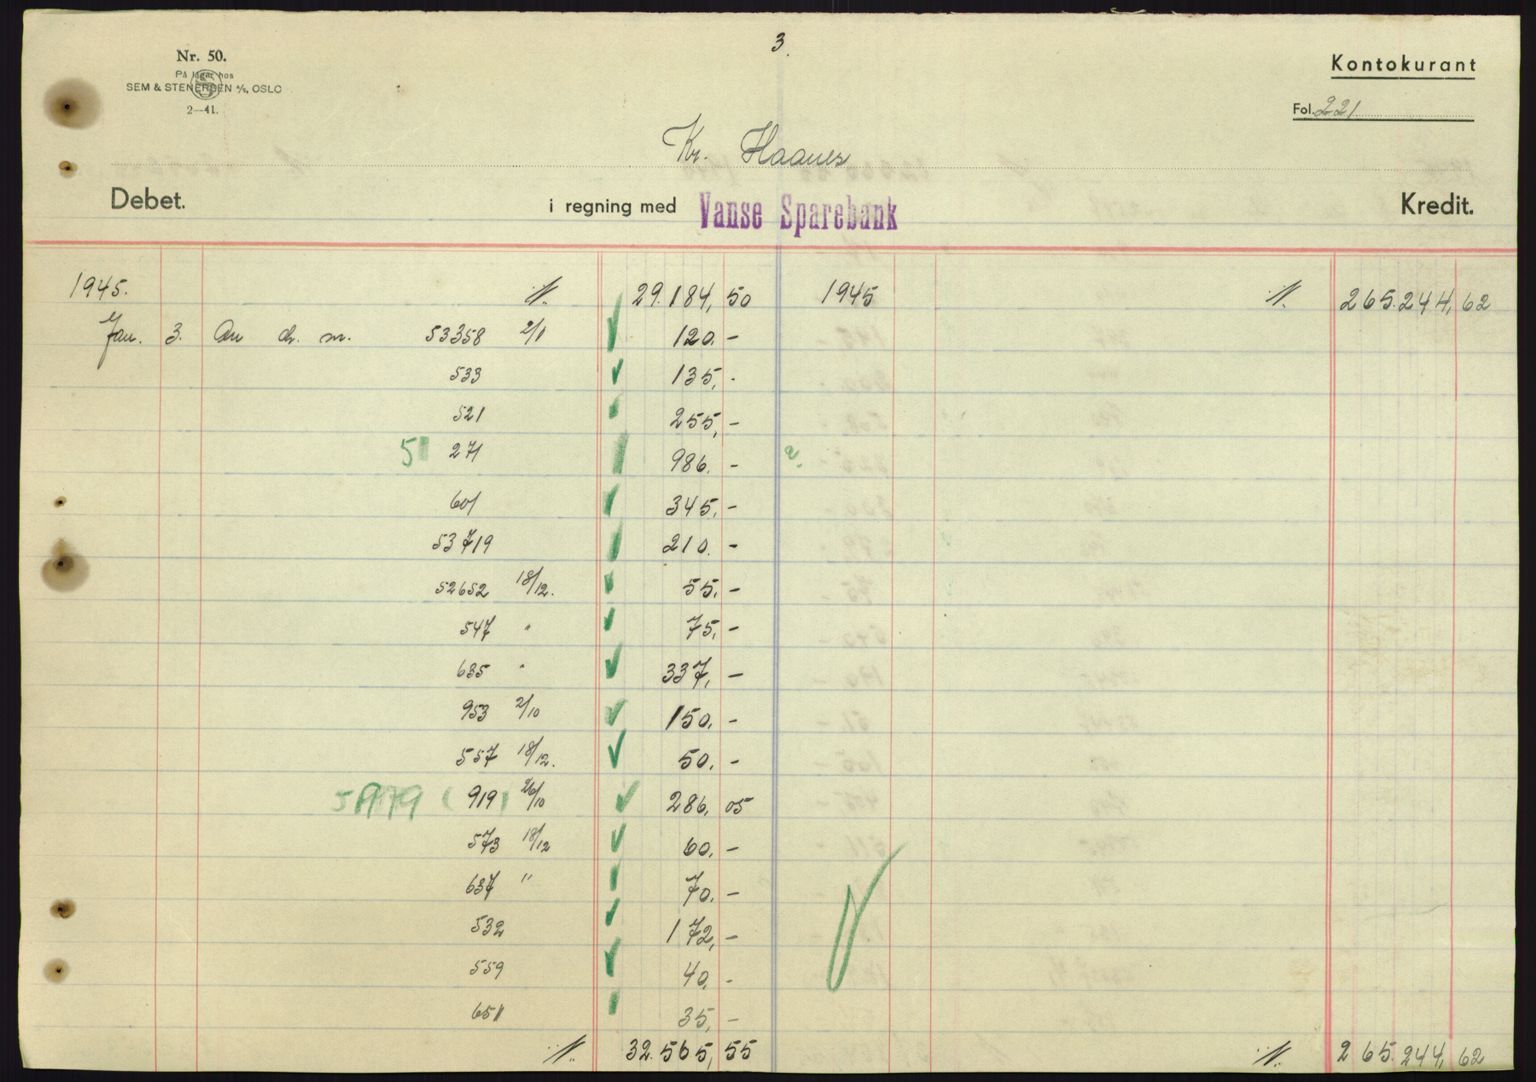 3.
Nr. 50.
På lager hos
SEM & STENERSEN A/S, OSLO
2—41.
Kontokurant
Fol. 221
Kr. Haanes
Debet. i regning med Vanse Sparebank Kredit.
1945. 29.184, 50 1945 265.244, 62
Jan. 3. An ch. nr. 53358 2/1 120. -
533 135, -
521 255, -
51 271 986. - ?
601 345, -
53719 210. -
52652 18/12. 55. -
547 " 75, -
635 " 337, -
953 2/10 150. -
557 18/12. 50. -
( 919 ) 26/10 286, 05
573 18/12 60, -
637 " 70. -
532 172, -
559 40, -
651 35, -
32.565, 55 265.244, 62